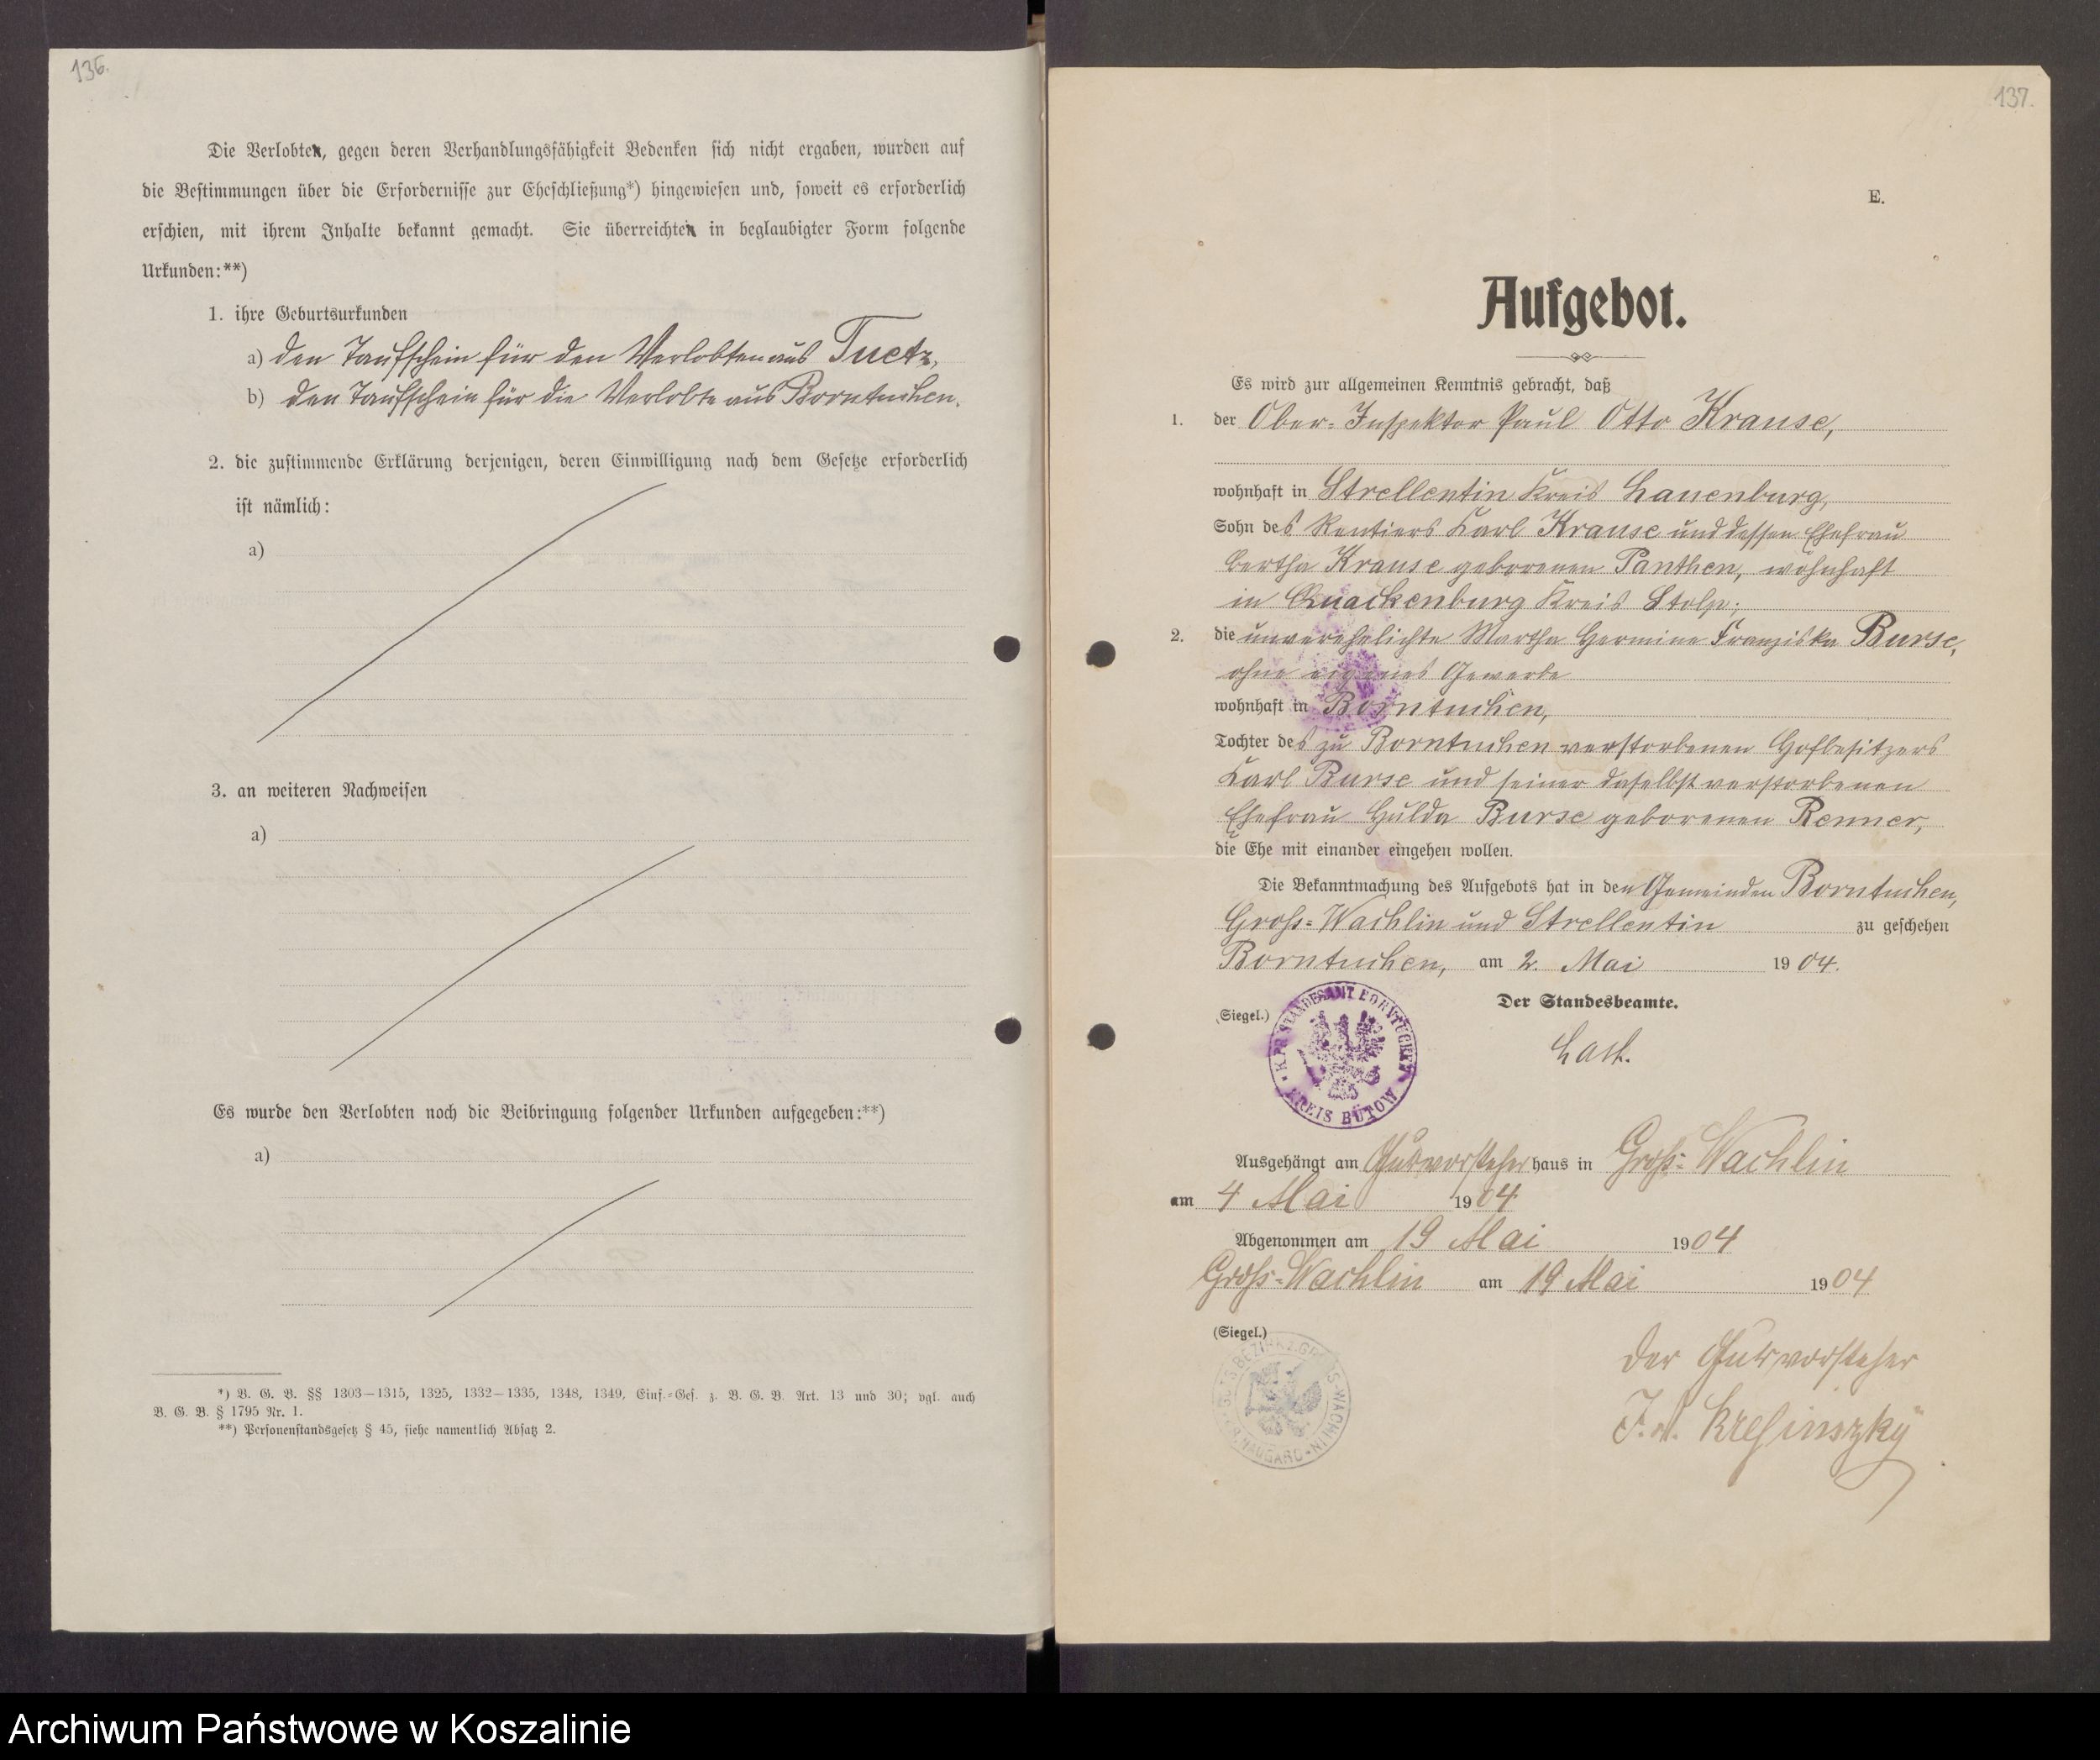 136.
Die Verlobten, gegen deren Verhandlungsfähigkeit Bedenken sich nicht ergaben, wurden auf
die Bestimmungen über die Erfordernisse zur Eheschließung*) hingewiesen und, soweit es erforderlich
erschien, mit ihrem Inhalte bekannt gemacht. Sie überreichten in beglaubigter Form folgende
Urkunden:**)
1. ihre Geburtsurkunden
a) den Taufschein für den Verlobten aus Tuetz,
b) den Taufschein für die Verlobte aus Borntuchen.
2. die zustimmende Erklärung derjenigen, deren Einwilligung nach dem Gesetze erforderlich
ist nämlich:
a)
3. an weiteren Nachweisen
a)
Es wurde den Verlobten noch die Beibringung folgender Urkunden aufgegeben:**)
a)
*) B. G. B. §§ 1303–1315, 1325, 1332–1335, 1348, 1349, Einf.-Ges. z. B. G. B. Art. 13 und 30; vgl. auch
B. G. B. § 1795 Nr. 1.
**) Personenstandsgesetz § 45, siehe namentlich Absatz 2.
137.
E.
Aufgebot.
Es wird zur allgemeinen Kenntnis gebracht, daß
1. der Ober-Inspektor Paul Otto Krause,
wohnhaft in Strellentin Kreis Lauenburg,
Sohn des Rentiers Karl Krause und dessen Ehefrau
Bertha Krause geborenen Panthen, wohnhaft
in Quackenburg Kreis Stolp;
2. die unverehelichte Martha Hermine Franziska Burse,
ohne eigenes Gewerbe
wohnhaft in Borntuchen,
Tochter des zu Borntuchen verstorbenen Hofbesitzers
Karl Burse und seiner daselbst verstorbenen
Ehefrau Hulda Burse geborenen Renner,
die Ehe mit einander eingehen wollen.
Die Bekanntmachung des Aufgebots hat in den Gemeinden Borntuchen,
Groß-Wachlin und Strellentin zu geschehen
Borntuchen, am 2. Mai 1904.
(Siegel.)
K. PR. STANDESAMT BORNTUCHEN
KREIS BÜTOW
Der Standesbeamte.
Ausgehängt am Gutsvorsteher haus in Groß-Wachlin
am 4 Mai 1904
Abgenommen am 19 Mai 1904
Groß-Wachlin am 19 Mai 1904
(Siegel.)
GUTS-BEZIRK GROSS-WACHLIN
KR. NAUGARD
Der Gutsvorsteher
Archiwum Państwowe w Koszalinie